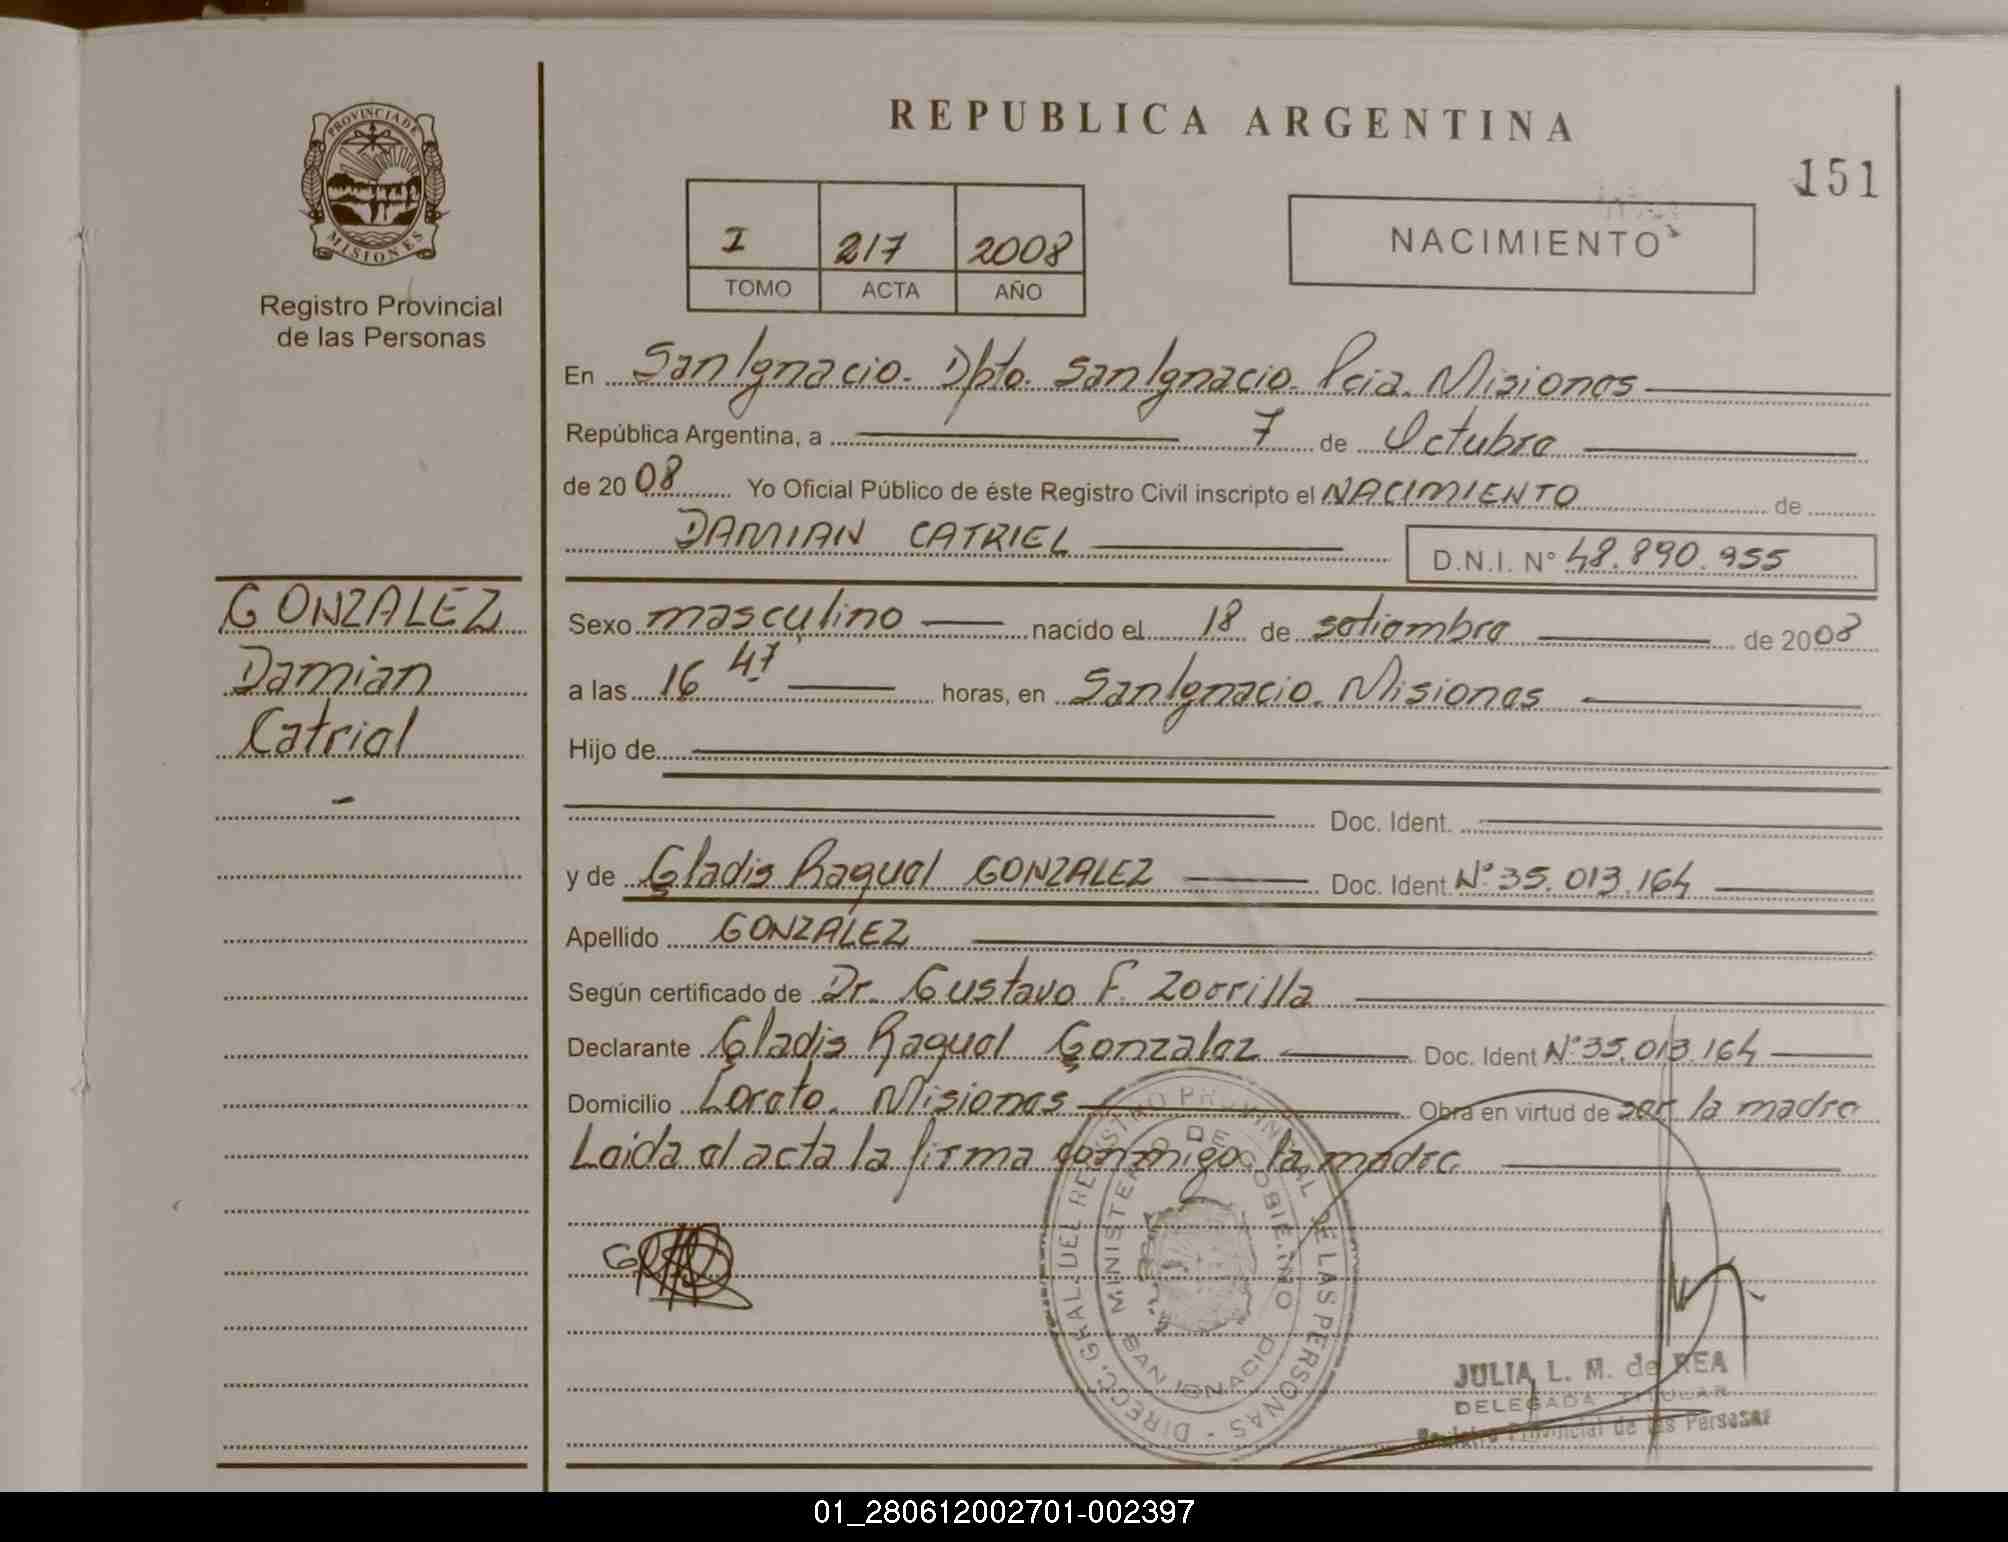 REPUBLICA ARGENTINA
151
PROVINCIA DE
MISIONES
Registro Provincial
de las Personas
I 217 2008
TOMO ACTA AÑO
NACIMIENTO
En San Ignacio. Dpto. San Ignacio. Pcia. Misiones
República Argentina, a 7 de Octubre
de 2008 Yo Oficial Público de éste Registro Civil inscripto el NACIMIENTO de
DAMIAN CATRIEL D.N.I. N° 48.890.955
GONZALEZ
Damian
Catriel
Sexo masculino nacido el 18 de setiembre de 2008
a las 16 47 horas, en San Ignacio. Misiones
Hijo de
Doc. Ident.
y de Gladis Raquel GONZALEZ Doc. Ident. N° 35.013.164
Apellido GONZALEZ
Según certificado de Dr. Gustavo F. Zorrilla
Declarante Gladis Raquel Gonzalez Doc. Ident N° 35.013.164
Domicilio Loreto. Misiones Obra en virtud de ser la madre
Leida el acta la firma conmigo la madre
DIRECC. GRAL. DEL REGISTRO PROVINCIAL DE LAS PERSONAS -
MINISTERIO DE GOBIERNO
SAN IGNACIO
JULIA L. M. de REA
DELEGADA TITULAR
Registro Provincial de las Personas
01_280612002701-002397